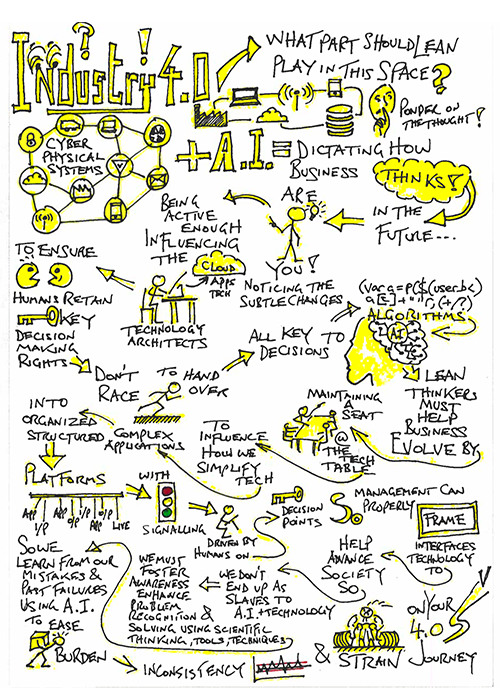 Industry 4.0
?
!
WHAT PART SHOULD LEAN
PLAY IN THIS SPACE?
PONDER ON
THE THOUGHT!
CYBER
PHYSICAL
SYSTEMS
+ A.I. = DICTATING HOW
BUSINESS
THINKS!
IN THE
FUTURE...
ARE
YOU!
NOTICING THE
SUBTLE CHANGES
BEING
ACTIVE
ENOUGH
INFLUENCING
THE
CLOUD
APPS
TECH
TECHNOLOGY
ARCHITECTS
TO ENSURE
HUMANS RETAIN
KEY
DECISION
MAKING
RIGHTS
DON'T
RACE
TO HAND
OVER
ALL KEY TO
DECISIONS
(var a=p($(user.b<)
ALGORITHMS
AI
LEAN
THINKERS
MUST
HELP
BUSINESS
EVOLVE BY
MAINTAINING
A
SEAT
@
THE
TECH
TABLE
TO
INFLUENCE
HOW WE
SIMPLIFY
TECH
COMPLEX
APPLICATIONS
INTO
ORGANIZED
STRUCTURED
PLATFORMS
APP I/P APP O/P I/P APP LIVE
WITH
SIGNALLING
DRIVEN BY
HUMANS ON
DECISION
POINTS
SO
MANAGEMENT CAN
PROPERLY
FRAME
INTERFACES
TECHNOLOGY
TO
HELP
ADVANCE
SOCIETY
SO
WE DON'T
END UP AS
SLAVES TO
A.I. + TECHNOLOGY
WE MUST
FOSTER
AWARENESS
ENHANCE
PROBLEM
RECOGNITION &
SOLVING USING SCIENTIFIC
THINKING, TOOLS, TECHNIQUES
SO WE
LEARN FROM OUR
MISTAKES &
PAST FAILURES
USING A.I.
TO EASE
BURDEN
INCONSISTENCY
& STRAIN
ON YOUR
4.0
JOURNEY